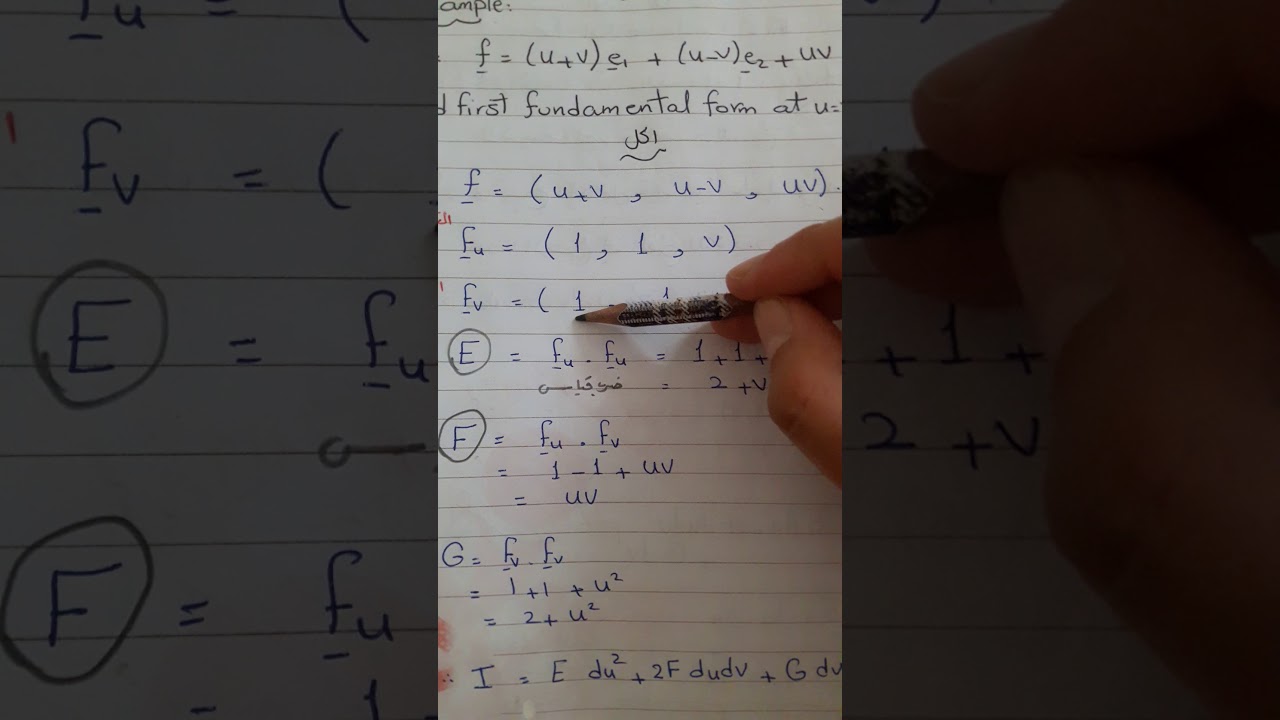 ample:
f = (u+v) e₁ + (u-v) e₂ + uv
d first fundamental form at u=
الحل
f = (u+v , u-v , uv).
fᵤ = ( 1 , 1 , v)
fᵥ = ( 1
E = fᵤ . fᵤ = 1 + 1 +
= 2 + v
F = fᵤ . fᵥ
= 1 - 1 + uv
= uv
G = fᵥ . fᵥ
= 1 + 1 + u²
= 2 + u²
∴ I = E du² + 2F du dv + G dv